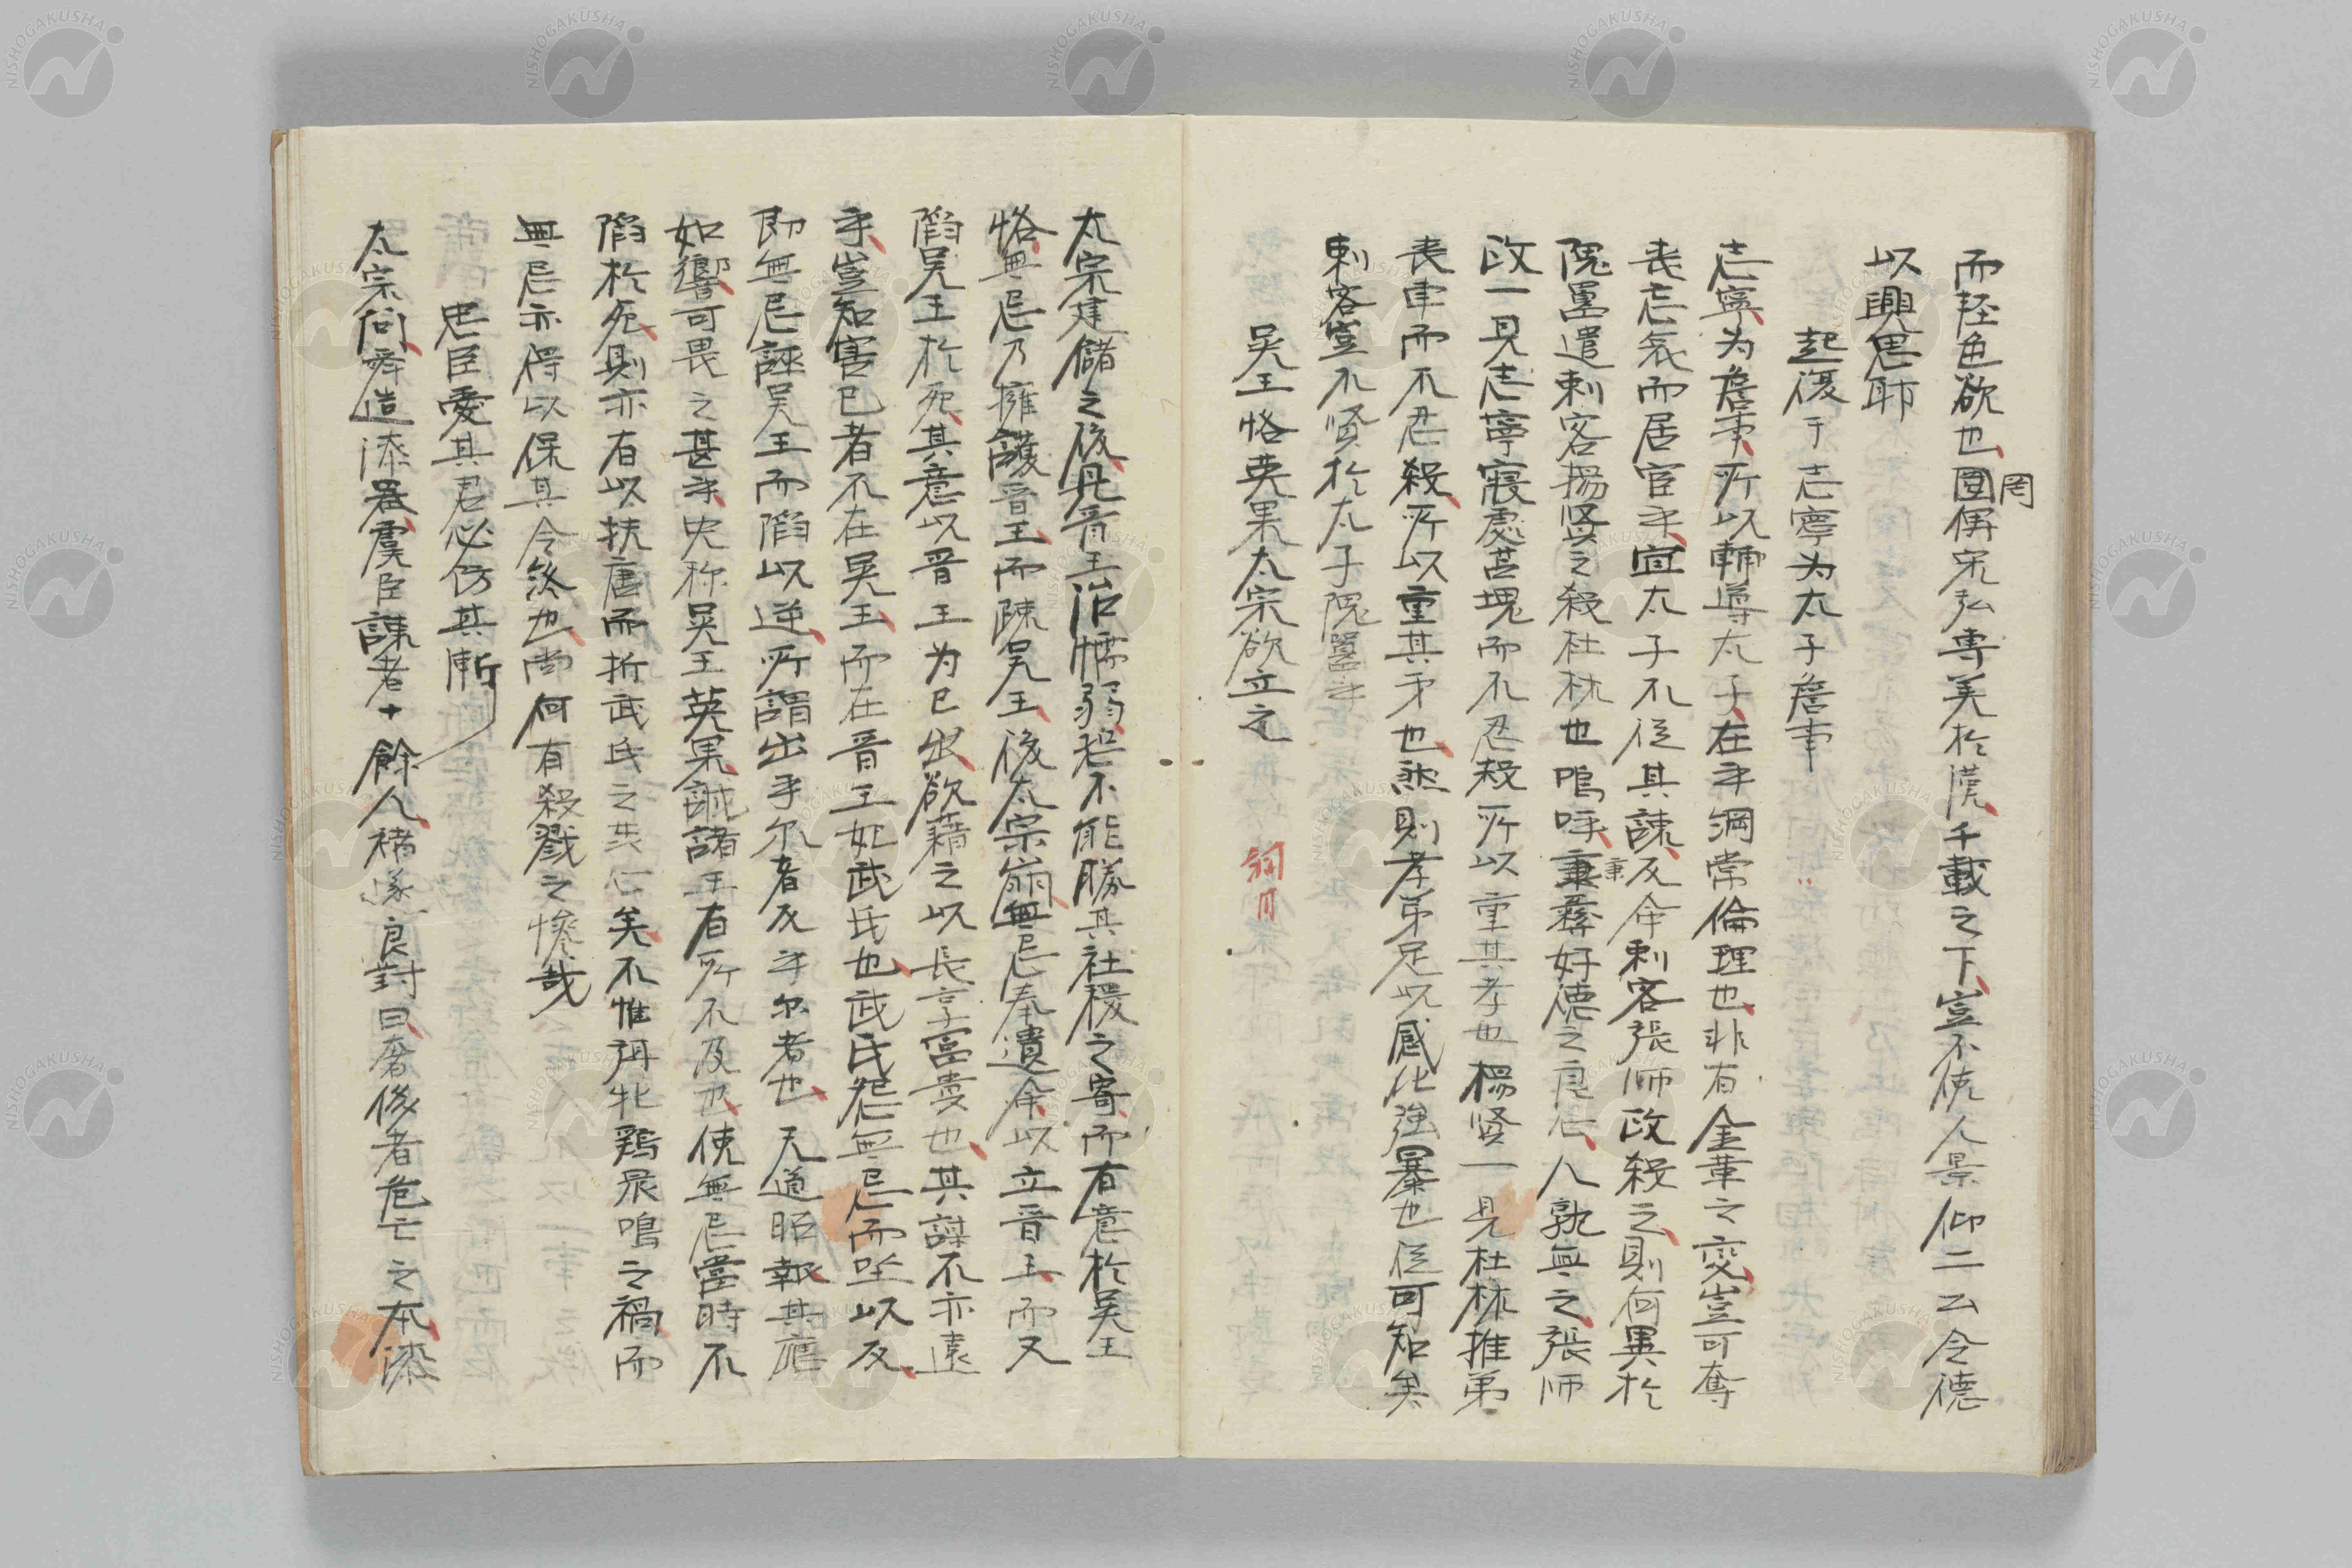 而輕色欲也罔
圕俾宋弘専美於漢千載之下豈不使人景仰二公令德
以興思耶
起復于志寧为太子詹事
志寧为詹事所以輔導太子在乎綱常倫理也非有金革之変豈可奪
喪忘哀而居官乎宜太子不從其諫反命刺客張师政殺之則何異於
隗囂遣刺客揚贤之殺杜林也嗚呼秉彝好德之良心人孰無之張师
政一見志寧寝處苫塊而不忍殺所以重其孝也楊贤一見杜林推弟
喪車而不忍殺所以重其弟也然則孝弟足以感化強暴也從可知矣
刺客豈不贤於太子隗囂乎
吴王恪英果太宗欲立之
太宗建儲之後見晋王治懦弱恐不能勝其社稷之寄而有意於吴王
恪無忌乃擁護晋王而疎吴王後太宗崩無忌奉遺命以立晋王而又
陷吴王於死其意以晋王为己出欲藉之以長享富貴也其謀不亦遠
乎豈知害己者不在吴王而在晋王妃武氏也武氏怨無忌而坐以反
即無忌誣吴王而陷以逆所謂出乎尔者反乎尔者也天道昭報其應
如響可畏之甚乎史称吴王英果誠諸王有所不及也使無忌當時不
陷於死則亦有以扶唐而折武氏之共心矣不惟弭牝鶏晨鳴之禍而
無忌亦得以保其令終也尚何有殺戮之惨哉
忠臣愛其君必防其漸
太宗问舜造漆器虞臣諫者十餘人褚遂良对曰奢侈者危亡之本漆